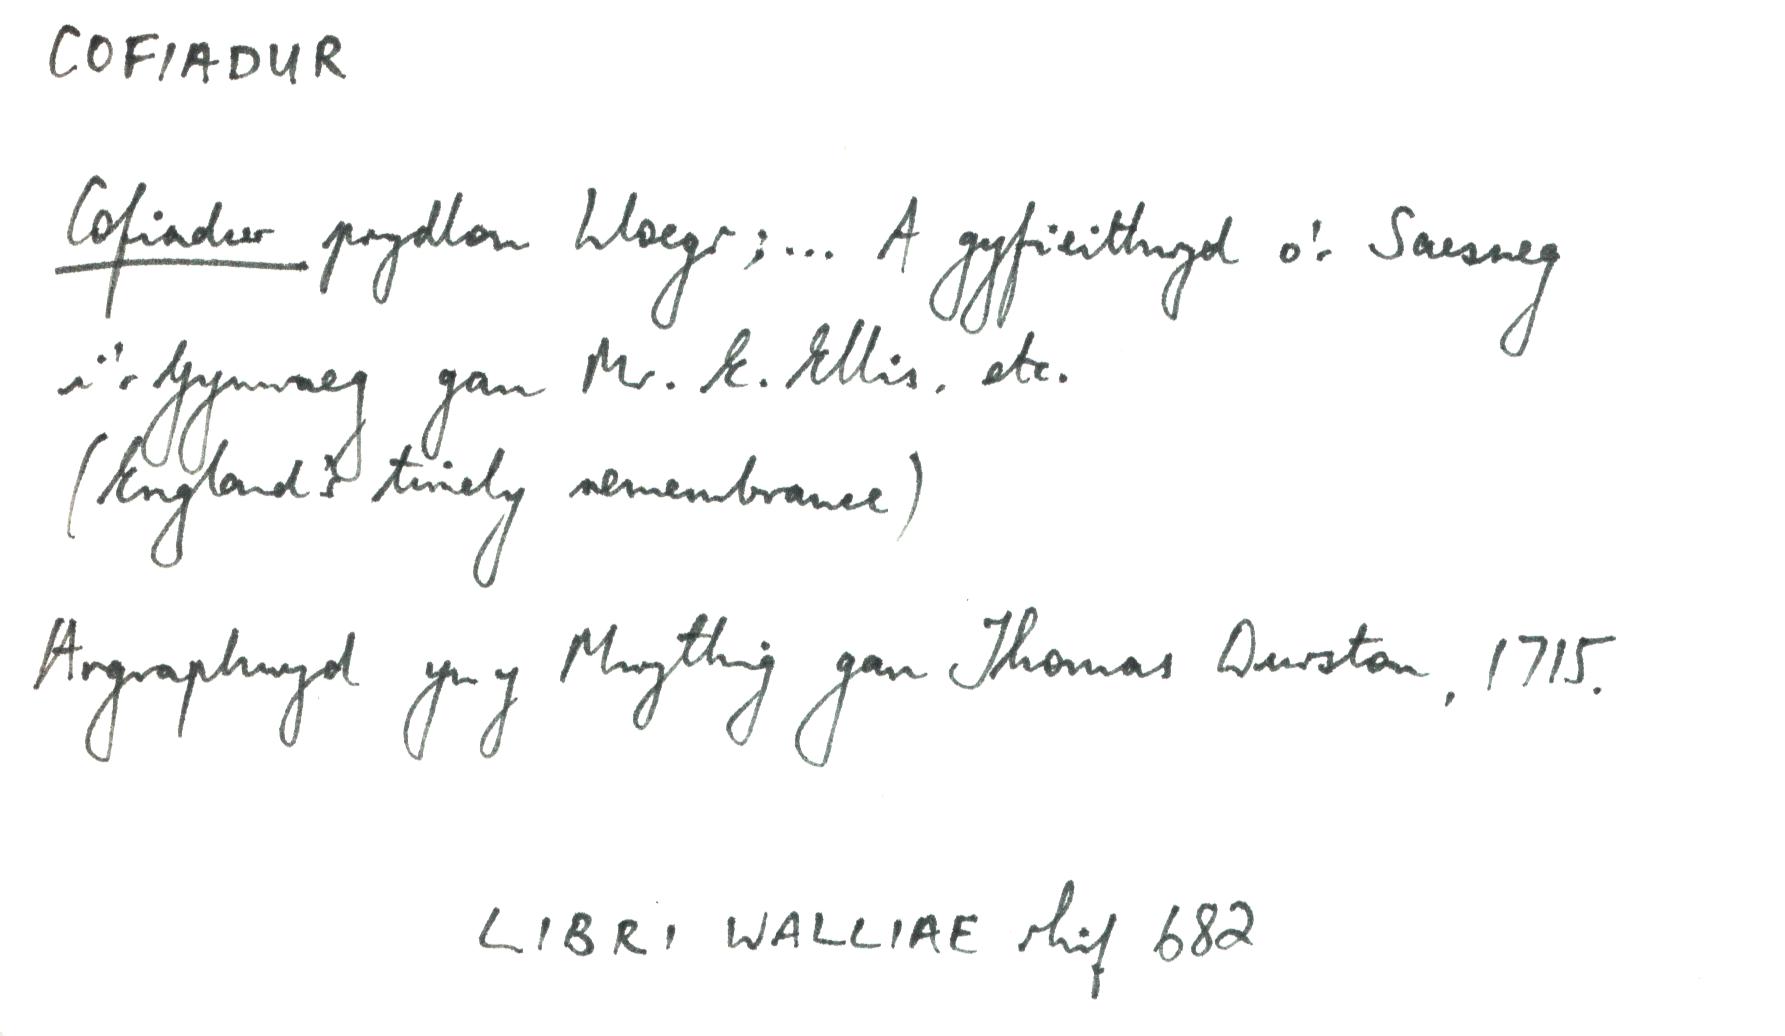 COFIADUR
Cofiadur prydlon Lloegr; ... A gyfieithwyd o'r Saesneg
i'r Gymraeg gan Mr. E. Ellis, etc.
(England's timely remembrance)
Argraphwyd yn y Mwythig gan Thomas Durston, 1715.
LIBRI WALLIAE rhif 682